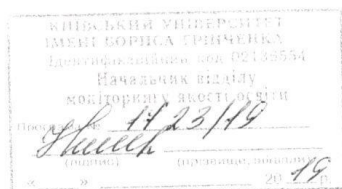 КИЇВСЬКИЙ УНІВЕРСИТЕТ
ІМЕНІ БОРИСА ГРІНЧЕНКА
Ідентифікаційний код 02136554
Начальник відділу
моніторингу якості освіти
Програма № 1723/19
(підпис) (прізвище, ініціали)
« » 2019 р.